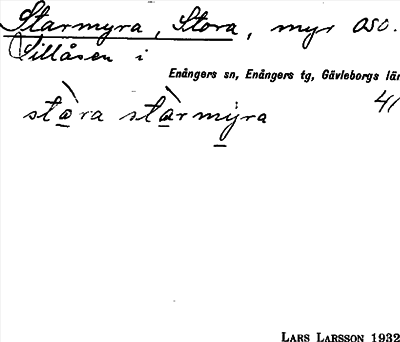 Starmyra, Stora, myr OSO.
Sillåsen i
Enångers sn, Enångers tg, Gävleborgs län
41
stora starmyra
LARS LARSSON 1932